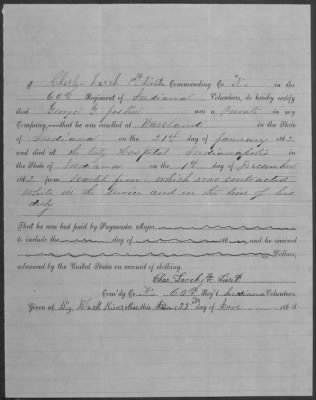 I, Charles 1st Lieut Commanding Co. "K" in the
60th Regiment of Indiana Volunteers, do hereby certify
that George F. was a Private in my
Company, that he was enrolled at in the State
of Indiana on the 21st day of January 1862
and died at the City Hospital Indianapolis in
the State of Indiana on the 1st day of December
1862 from which was contracted
while in the service and in the line of his
duty
That he was last paid by Paymaster Major
to include the day of 186 , and he received
Dollars,
advanced by the United States on account of clothing.
Chas 1st Lieut
Com'dg Co. K 60th Reg't Indiana Volunteers.
Given at Black River Miss. this 29th day of June 1863